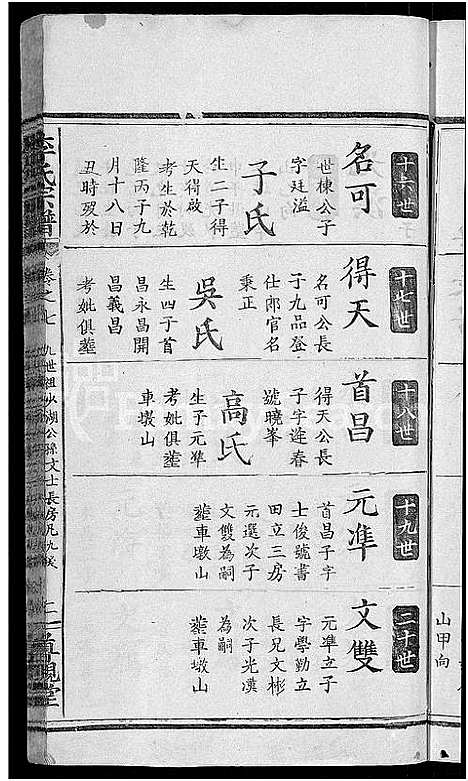 十六世
名可
世棟公子
字廷溢
子氏
生二子得
天得啟
考生於乾
隆丙子九
月十八日
丑時歿於
十七世
得天
名可公長
子九品登
仕郎官名
秉正
吳氏
生四子首
昌永昌開
昌義昌
考妣俱葬
十八世
首昌
得天公長
子字遊春
號曉峯
高氏
生子元準
考妣俱葬
車墩山
十九世
元準
首昌子字
士俊號書
田立三房
元選次子
文雙為嗣
葬車墩山
二十世
文雙
元準立子
字學勤立
長兄文彬
次子光漢
為嗣
葬車墩山
李氏宗譜
卷之七
九世祖少湖公孫文士長房凡九
道親堂
山甲向